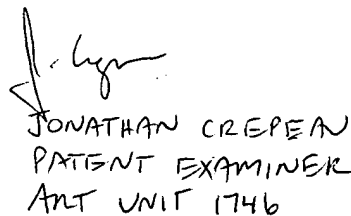 JONATHAN CREPEAU
PATENT EXAMINER
ART UNIT 1746